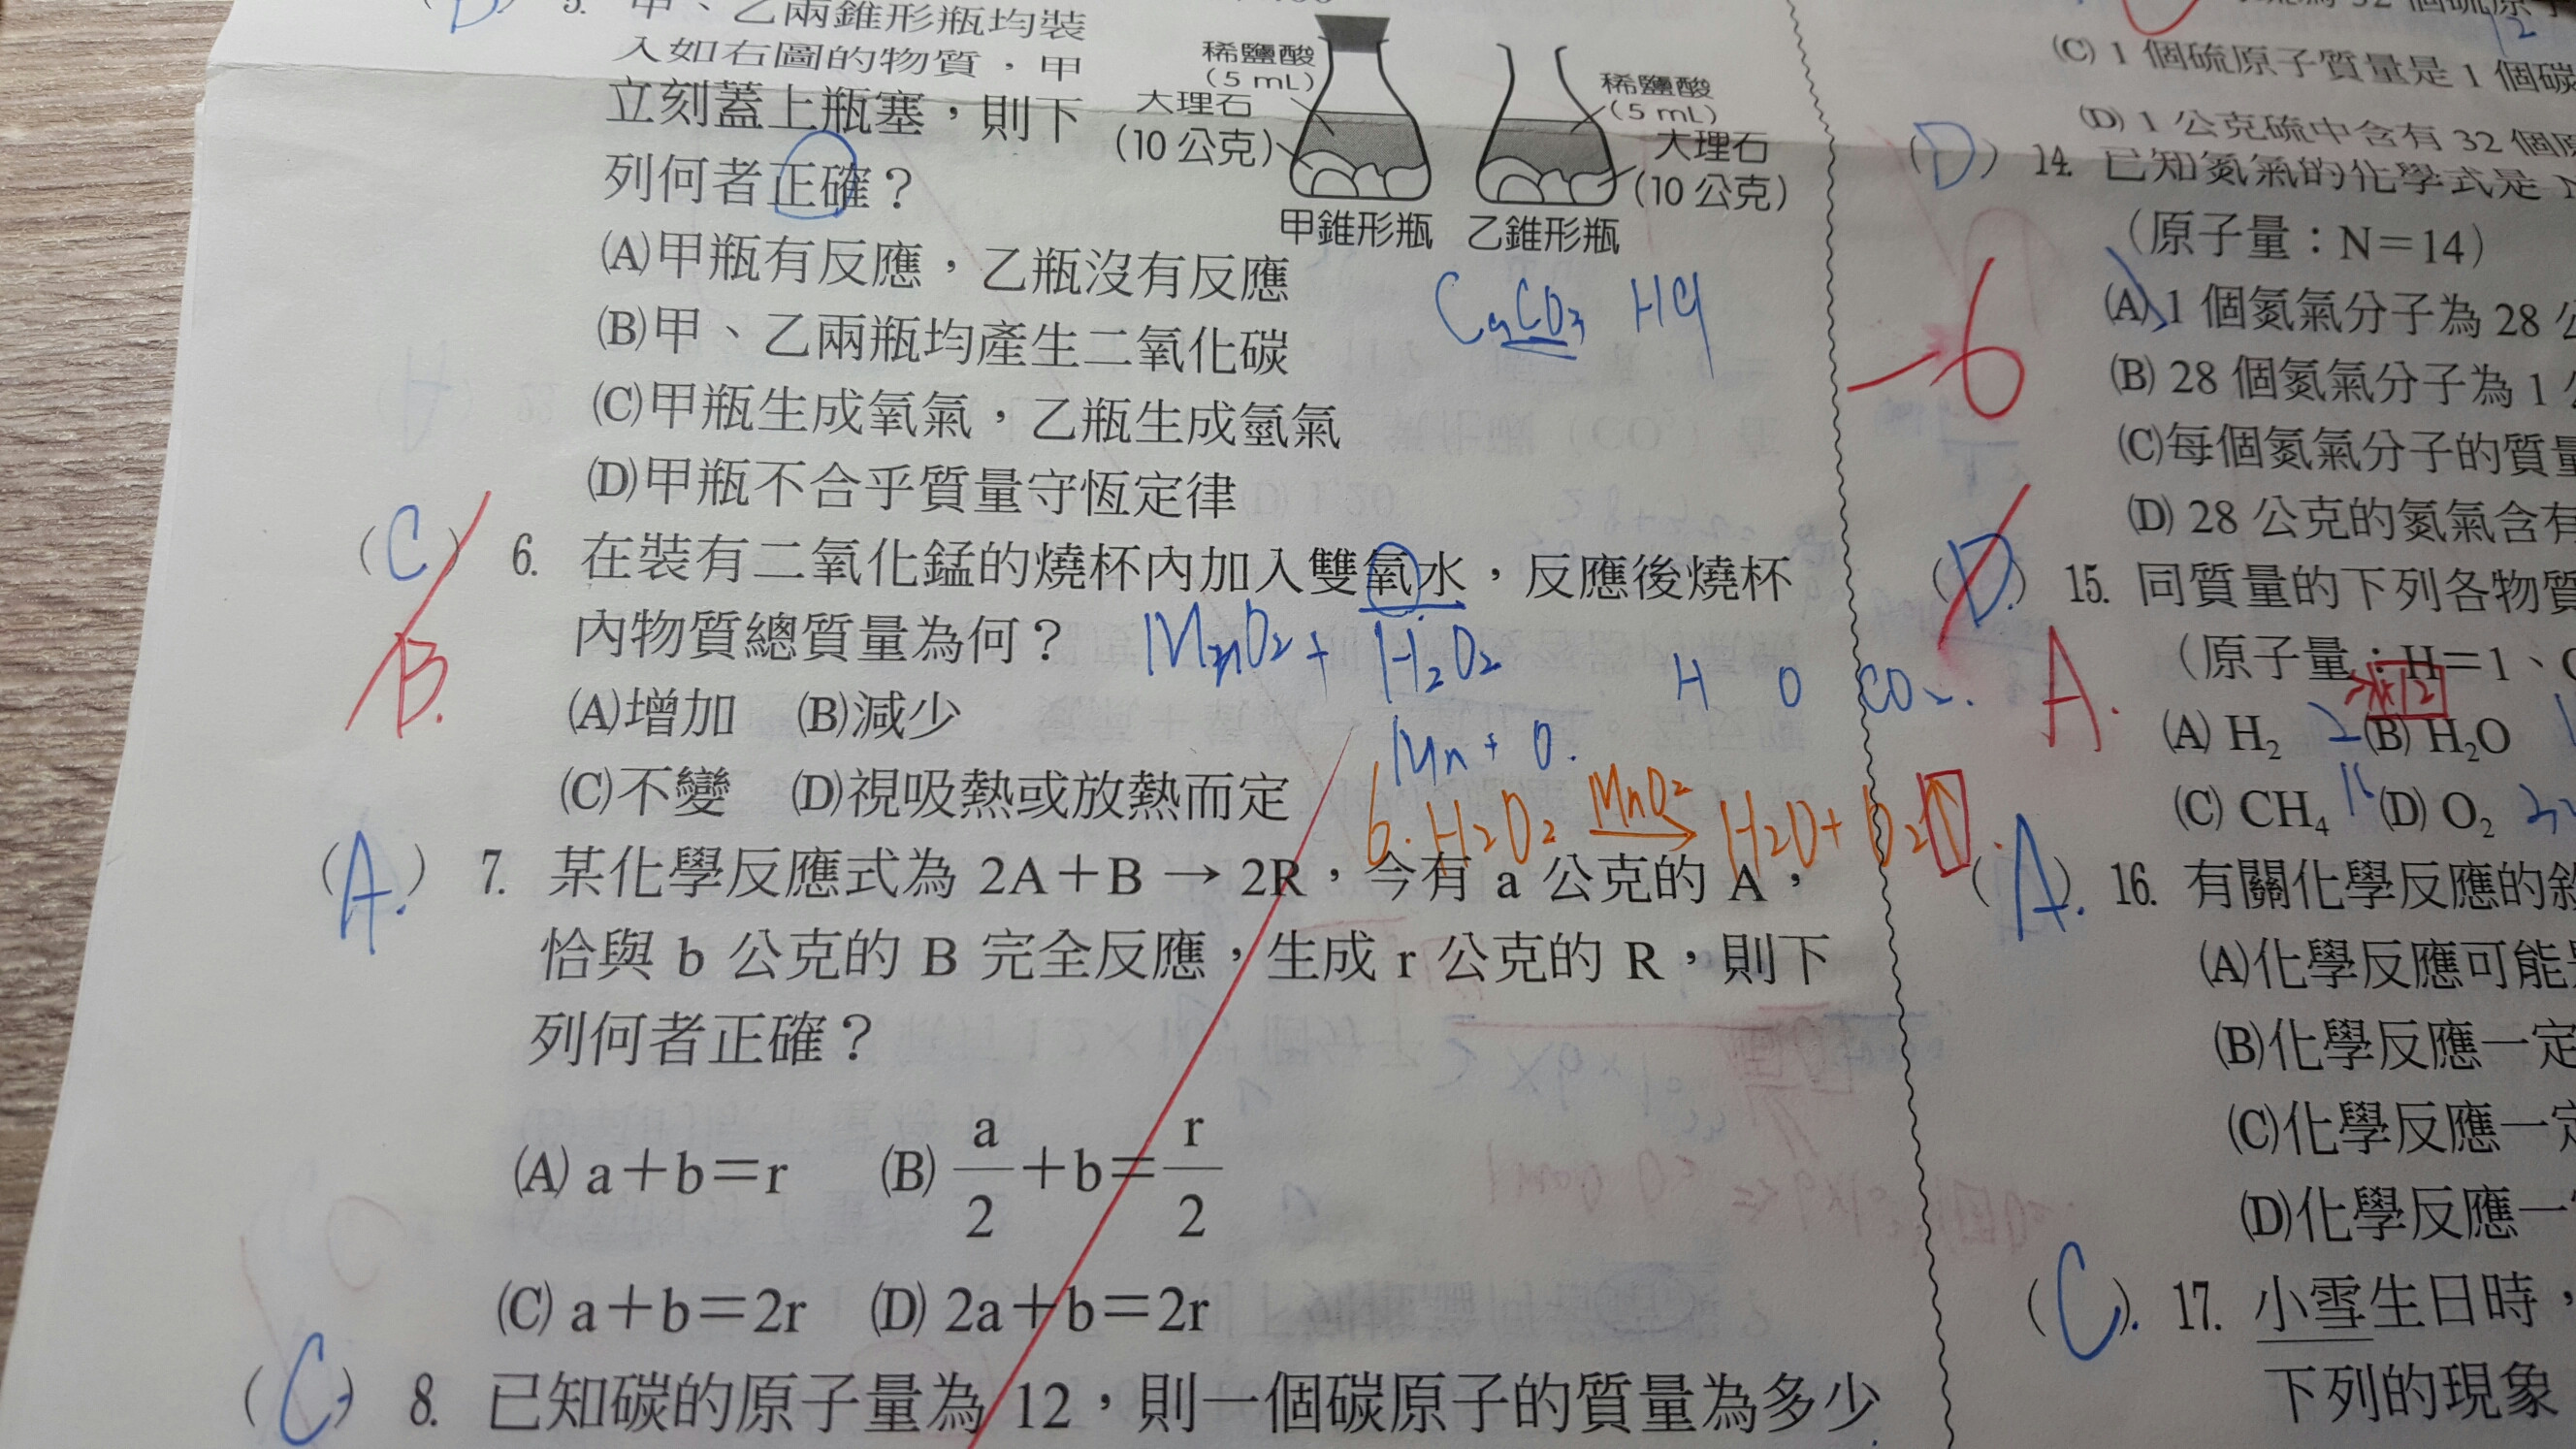 5. 甲、乙兩錐形瓶均裝
入如右圖的物質，甲
立刻蓋上瓶塞，則下
列何者正確？
稀鹽酸
(5 mL)
大理石
(10 公克)
甲錐形瓶
稀鹽酸
(5 mL)
大理石
(10 公克)
乙錐形瓶
(A)甲瓶有反應，乙瓶沒有反應
(B)甲、乙兩瓶均產生二氧化碳
(C)甲瓶生成氧氣，乙瓶生成氫氣
(D)甲瓶不合乎質量守恆定律
CaCO3 HCl
(C) 6. 在裝有二氧化錳的燒杯內加入雙氧水，反應後燒杯
B.
內物質總質量為何？
MnO2 + H2O2
H O CO2.
(A)增加 (B)減少
Mn + O.
(C)不變 (D)視吸熱或放熱而定
6. H2O2 MnO2 → H2O + O2↑.
(A.) 7. 某化學反應式為 2A＋B → 2R，今有 a 公克的 A，
恰與 b 公克的 B 完全反應，生成 r 公克的 R，則下
列何者正確？
(A) a＋b＝r (B) a/2＋b＝r/2
(C) a＋b＝2r (D) 2a＋b＝2r
(C) 8. 已知碳的原子量為 12，則一個碳原子的質量為多少
(C) 1 個硫原子質量是 1 個碳
(D) 1 公克硫中含有 32 個原
(D) 14. 已知氮氣的化學式是 N
(原子量：N＝14)
-6
(A) 1 個氮氣分子為 28 公
(B) 28 個氮氣分子為 1 公
(C)每個氮氣分子的質量
(D) 28 公克的氮氣含有
(D.) 15. 同質量的下列各物質
A.
(原子量：H＝1、
(A) H2 2 (B) H2O
(C) CH4 16 (D) O2
(A.) 16. 有關化學反應的敘
(A)化學反應可能
(B)化學反應一定
(C)化學反應一定
(D)化學反應一
(C.) 17. 小雪生日時，
下列的現象